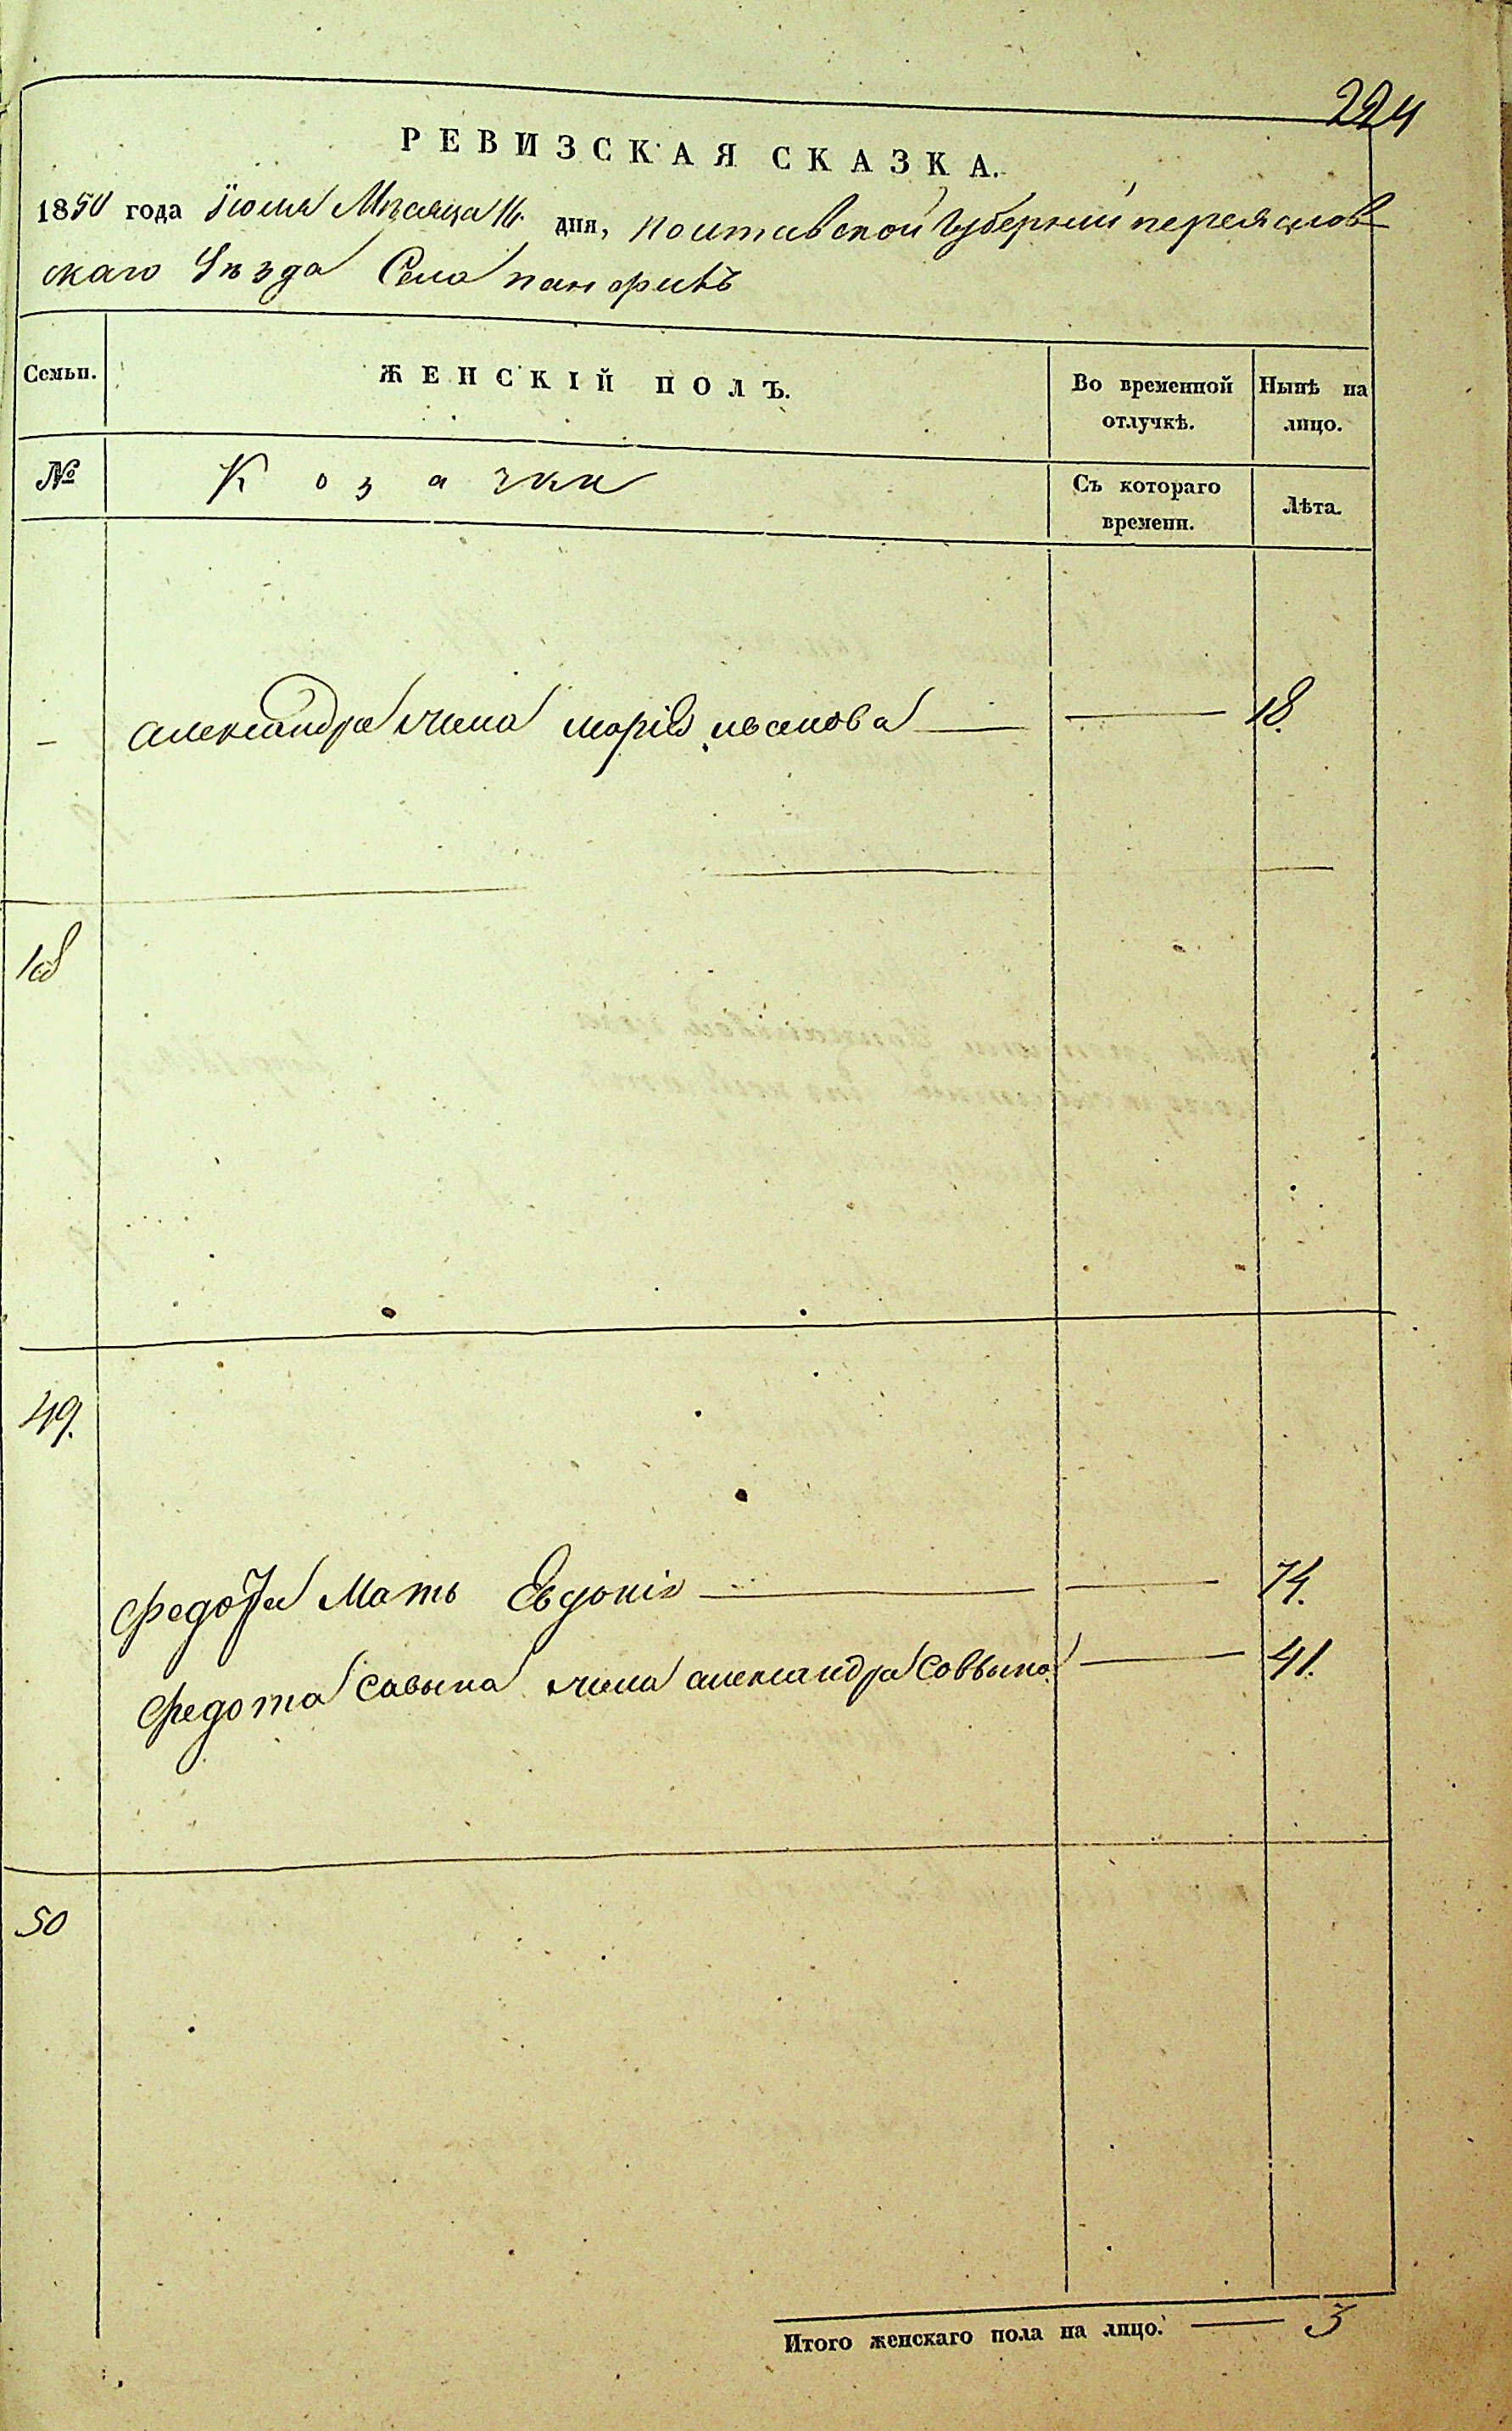 224
РЕВИЗСКАЯ СКАЗКА.
1850 года Июля Мѣсяца 16 дня, полтавской губернии переяслов
скаго уѣзда Села панфилъ
Семьи. ЖЕНСКІЙ ПОЛЪ. Во временной отлучкѣ. Нынѣ на лицо.
№ Козачки Съ котораго времени. Лѣта.
— александра жена марія иванова — — 18.
49.
федота Мать Евдокія — — 74.
федота савына жена александра саввына — 41.
50
Итого женскаго пола на лицо. — 3